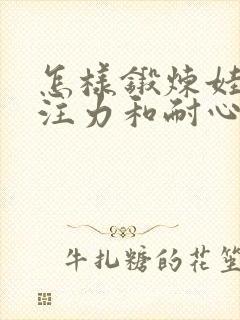 怎样锻炼娃
注力和耐心
牛扎糖的花笙